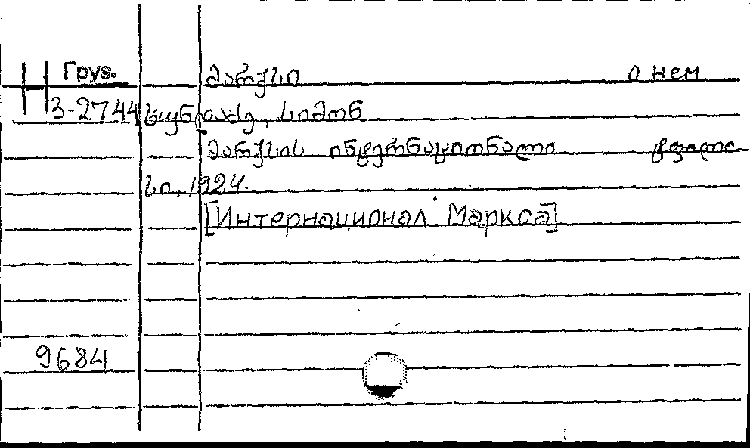 Груз. მარქსი о нем
3-2744 ხუნდაძე, სიმონ
მარქსის ინტერნაციონალი
სი, 1924.
[Интернационал Маркса]
9684